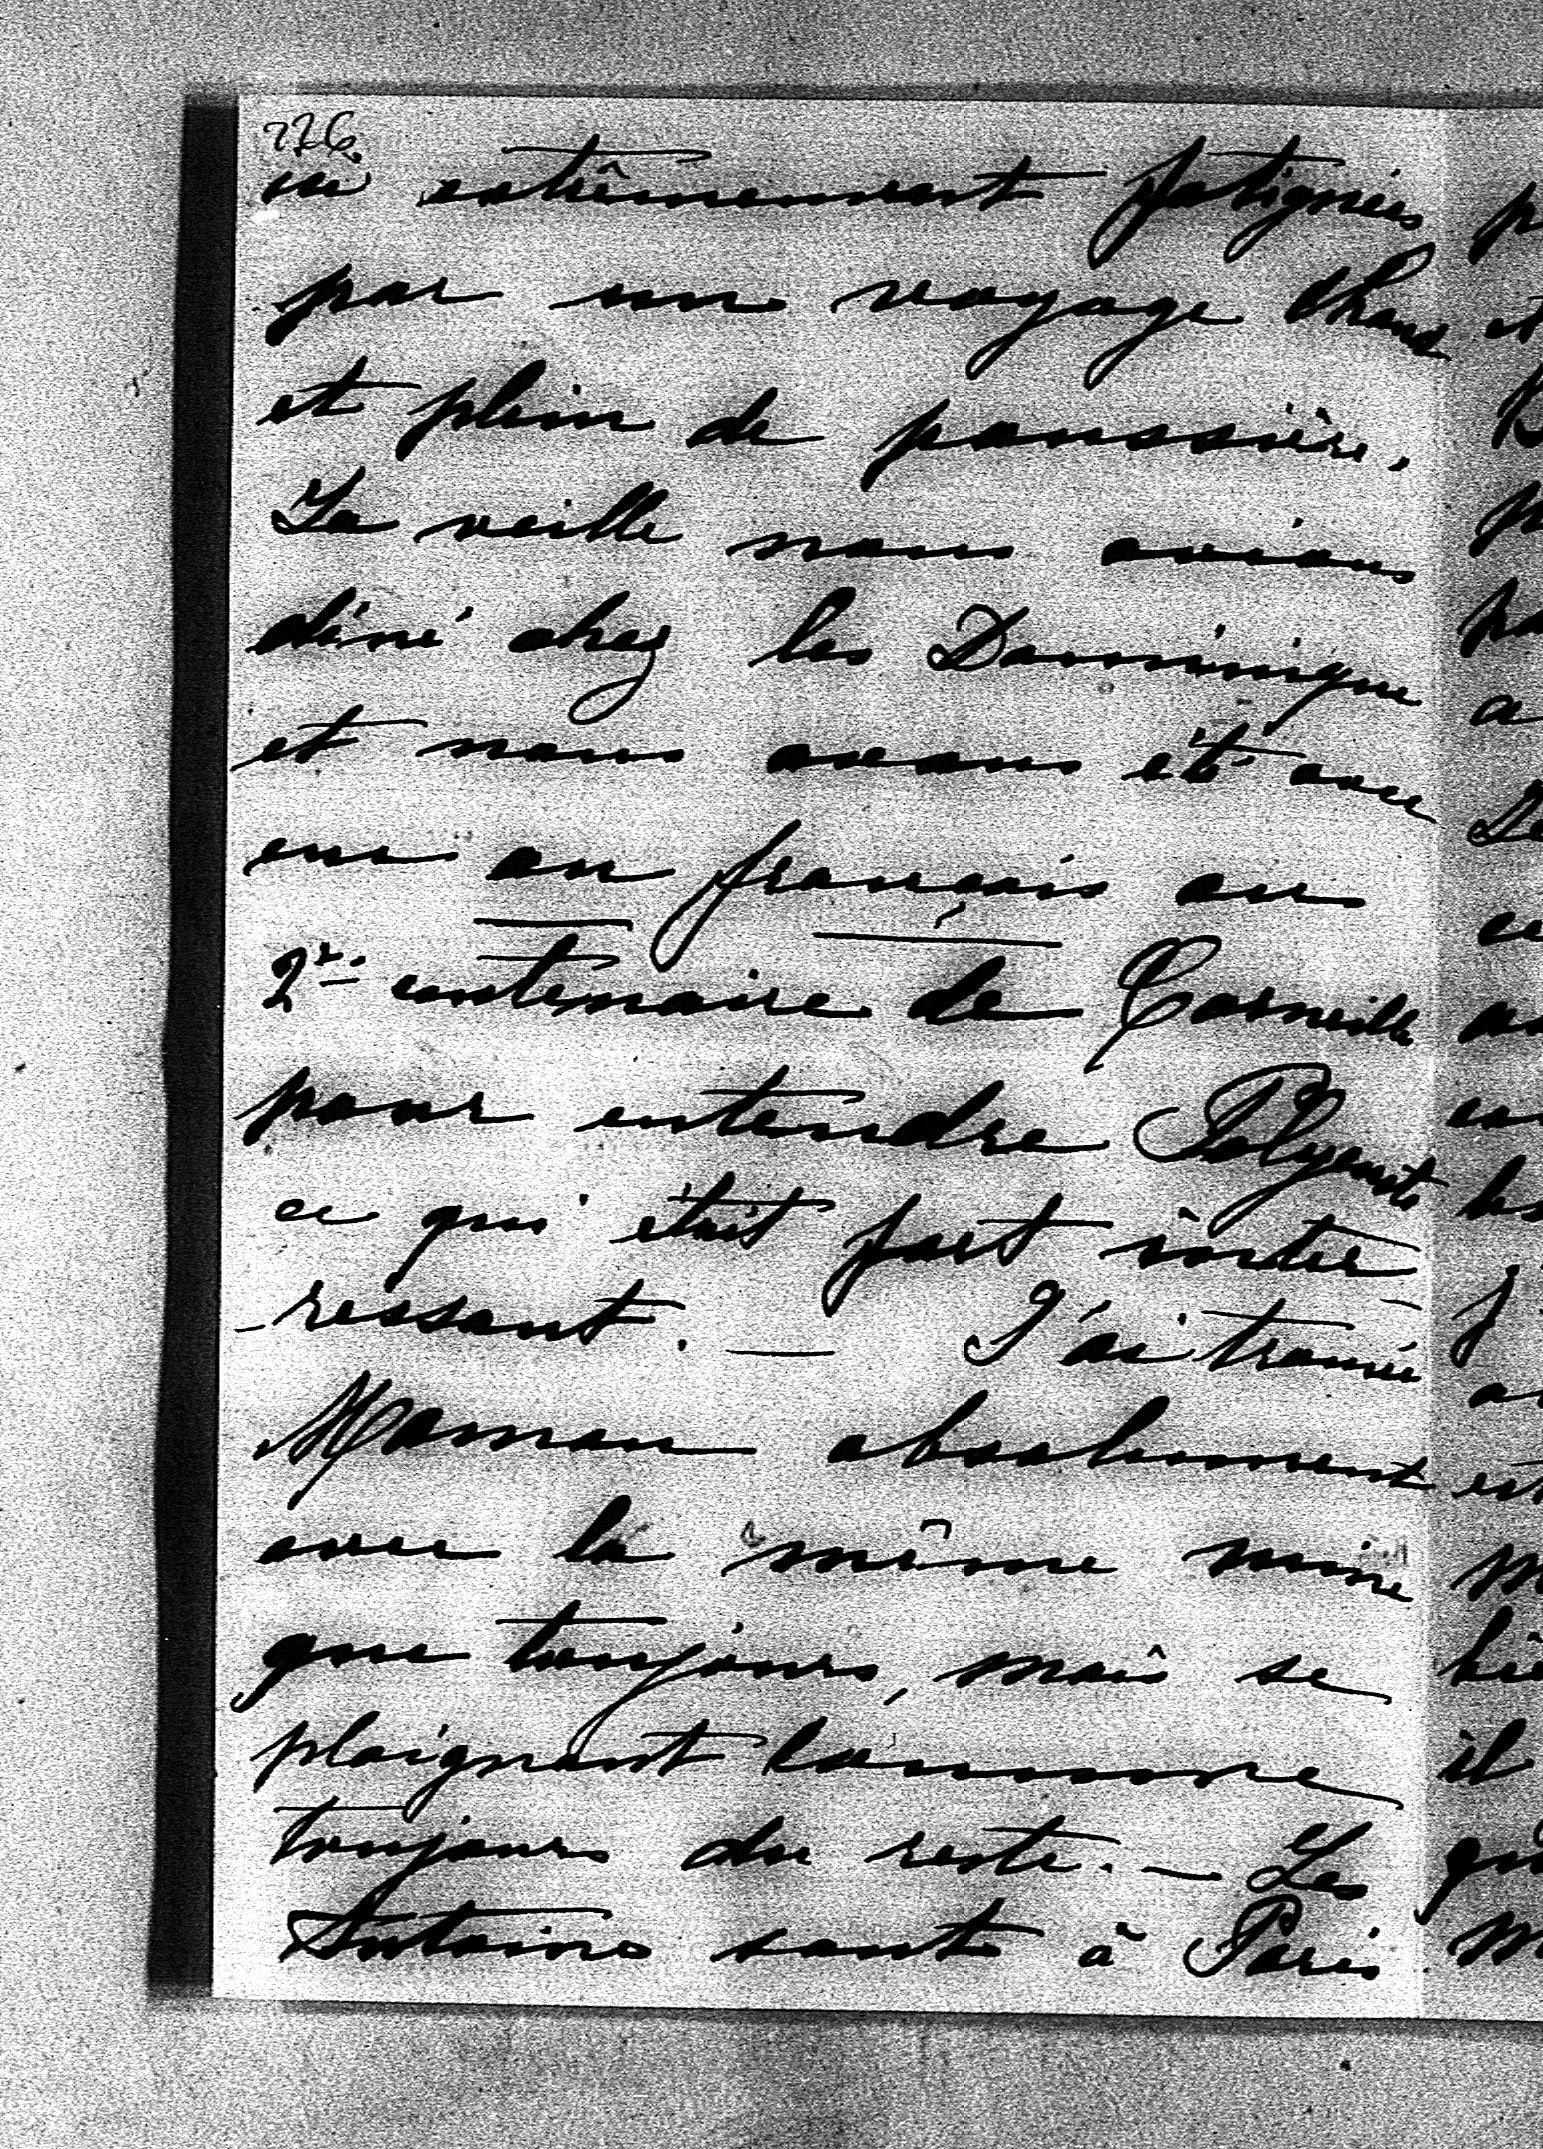 226.
ici extrêmement fatiguées
par un voyage chaud
et plein de poussière.
La veille nous avions
diné chez les Dominique
et nous avons été avec
eux au français au
2e centenaire de Corneille
pour entendre Polyeucte
ce qui était fort inté
ressant. — J'ai trouvé
Maman absolument
avec la même mine
que toujours, mais se
plaignant comme
toujours du reste. — Les
Antoine sont à Paris